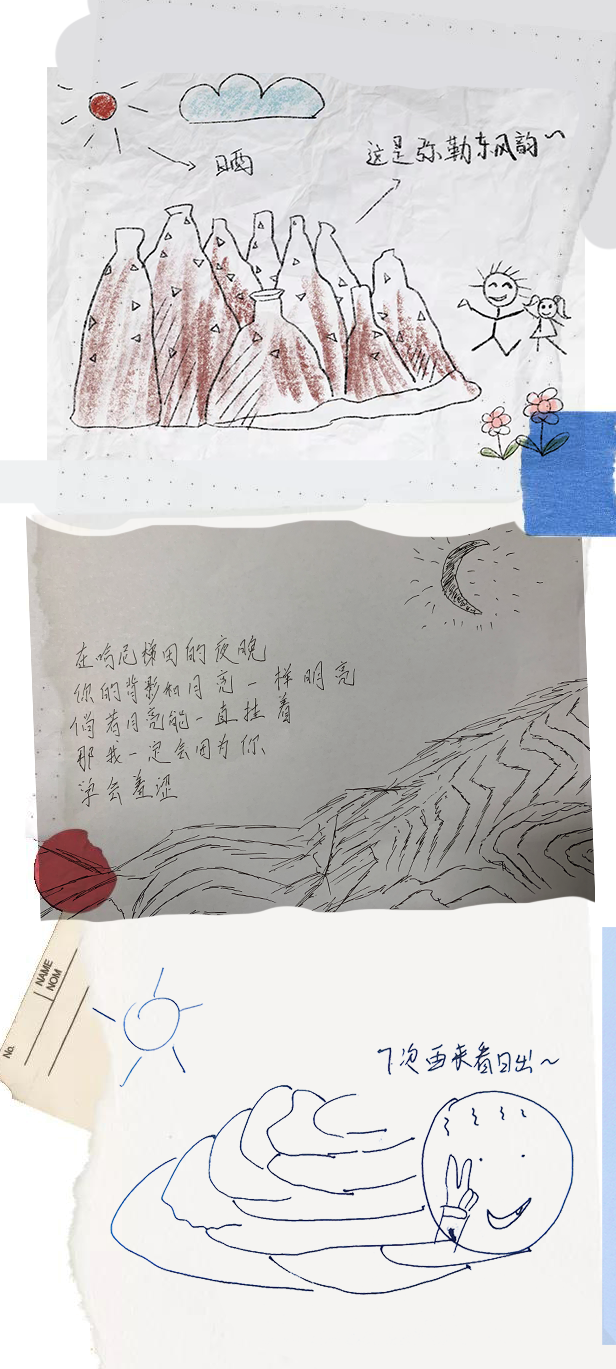 晒
这是弥勒东风韵~
在哈尼梯田的夜晚
你的背影如月亮一样明亮
倘若月亮能一直挂着
那我一定会因为你
学会羞涩
NAME
NOM
No.
下次再来看日出~